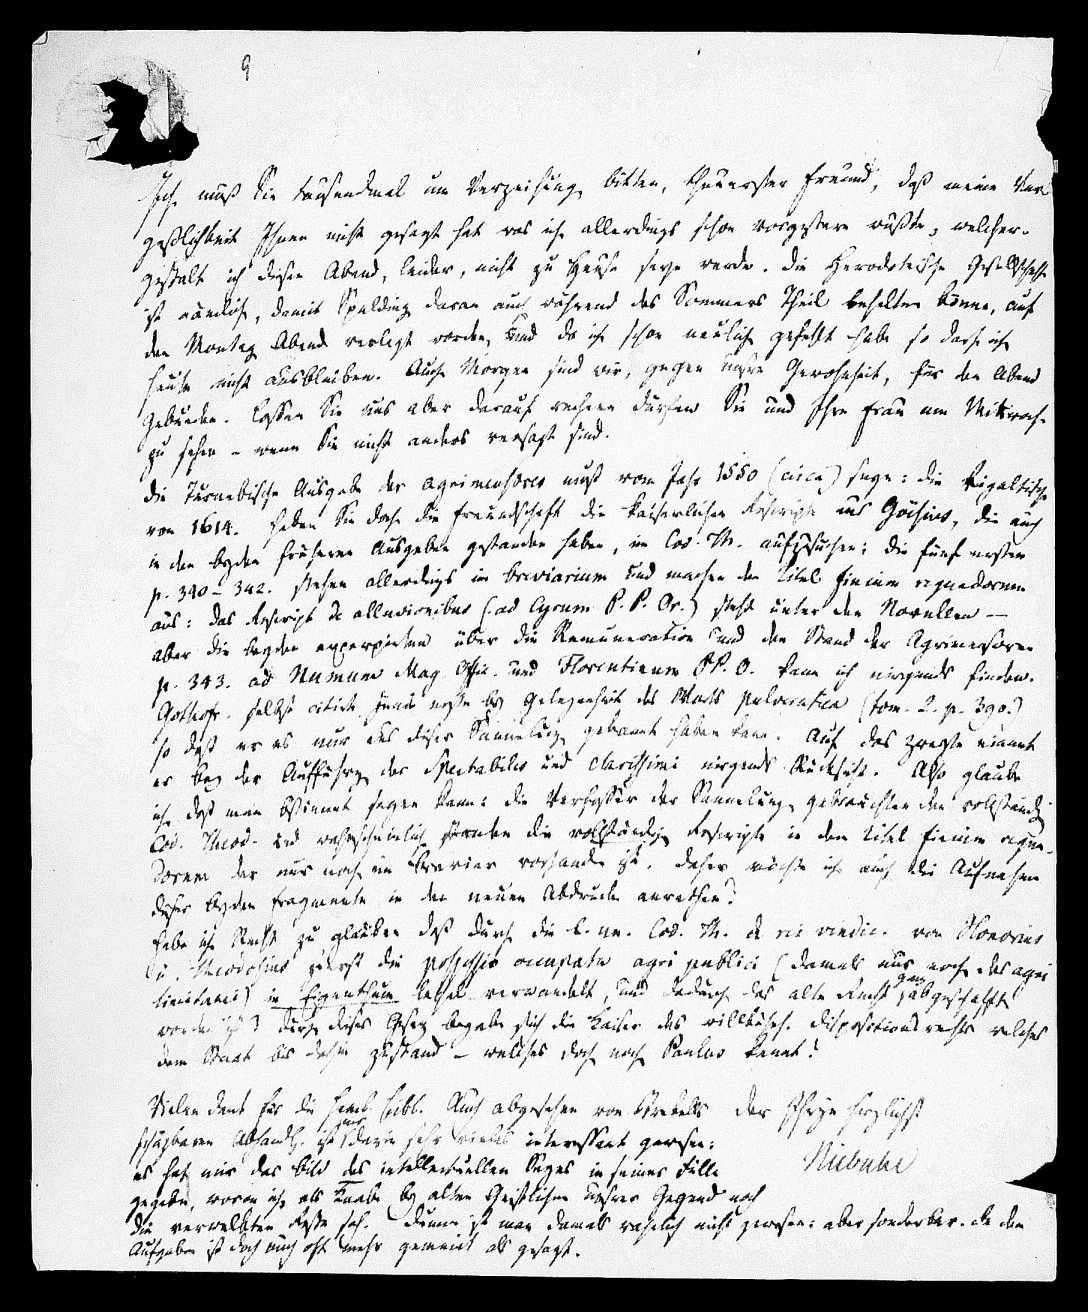 9
Ich muß Sie tausendmal um Verzeihung bitten, theuerster Freund, daß meine Ver
geßlichkeit Ihnen nicht gesagt hat was ich allerdings schon vorgestern wußte, welcher-
gestalt ich diesen Abend, leider, nicht zu Hause seyn werde. Die Herodoteische Gesellschaft
ist nämlich, damit Spalding daran auch während des Sommers Theil behalten könne, auf
den Montag Abend verlegt worden, und da ich schon neulich gefehlt habe so darf ich
heute nicht ausbleiben. Auch Morgen sind wir, gegen unsre Gewohnheit, für den Abend
gebunden. Lassen Sie uns aber darauf rechnen dürfen Sie und Ihre Frau am Mittwoch
zu sehen – wenn Sie nicht anders versagt sind.
Die Turnebische Ausgabe der agrimensores muß vom Jahr 1550 (circa) seyn: die Rigaltische
von 1614. Haben Sie doch die Freundschaft die kaiserlichen Rescripte aus Goesius, die auch
in den beyden früheren Ausgaben gestanden haben, im Cod. Th. aufzusuchen; die fünf ersten
p. 340–342. stehen allerdings im breviarium und machen den Titel finium regundorum
aus: das Rescript de alluvionibus (ad Cyrum P. P. Or.) steht unter den Novellen —
aber die beyden über die Remuneration und den Stand der Agrimensoren
p. 343. ad Mag. Offic. und Florentinum PP. O. kann ich nirgends finden.
Gothofr. selbst citirt jenes erste bey Gelegenheit des Worts pulveratica (tom. 2. p. 390.)
so daß er es nur aus dieser Sammlung gekannt haben kann. Auf das zweyte nimmt
er bey der Aufführung der Spectabiles und clarissimi nirgends Rücksicht. Also glaube
ich daß man bestimmt sagen kann: die Verfasser der Sammlung gebrauchten den vollständigen
Cod. Theod. und wahrscheinlich standen die vollständigen Rescripte in dem Titel finium regun-
dorum der nur noch im Brevier vorhanden ist. Daher möchte ich auch die Aufnahme
dieser beyden Fragmente in den neuen Abdrucke anrathen?
Habe ich Recht zu glauben daß durch die l. un. Cod. Th. de rei vindic. von Honorius
u. Theodosius zuerst die possessio occupata agri publici (damals nur noch des agri
limitanei) in Eigenthum verwandelt, und dadurch das alte Recht ganz abgeschafft
worden ist? Durch dieses Gesetz begaben sich die Kaiser des willkührl. Dispositionsrechts welches
dem Staat bis dahin zustand – welches doch noch Paulus kennt!
Vielen Dank für die Bibl. Auch abgesehen von
schätzbaren Abhandl. ist mir darin sehr vieles interessant gewesen:
es hat mir das Bild des intellectuellen in seiner Fülle
gegeben, wovon ich als Knabe bey alten Geistlichen unsrer Gegend noch
die verwelkten Reste sah. Dumm ist man damals wahrlich nicht gewesen: aber sonderbar. In den
Aufgaben ist doch auch oft mehr gemeint als gesagt.
Der Ihrige herzlichst
Niebuhr